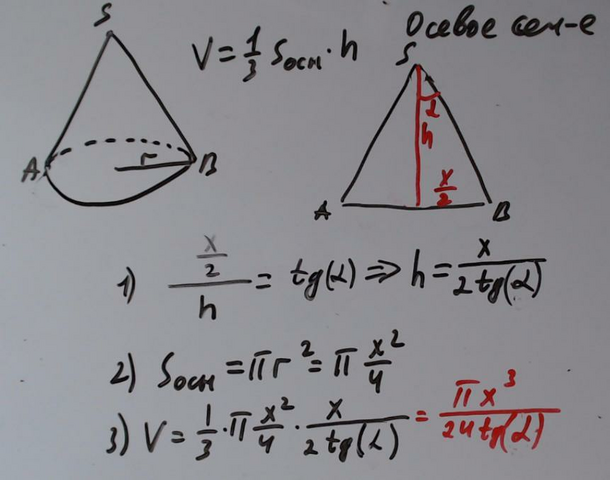 Осевое сеч-е
S
V = 1/3 Sосн · h
S
α
h
A
r
B
x/2
A
B
1) (x/2)/h = tg(α) => h = x/(2tg(α))
2) Sосн = πr² = π x²/4
3) V = 1/3 · π x²/4 · x/(2tg(α)) = πx³/(24tg(α))